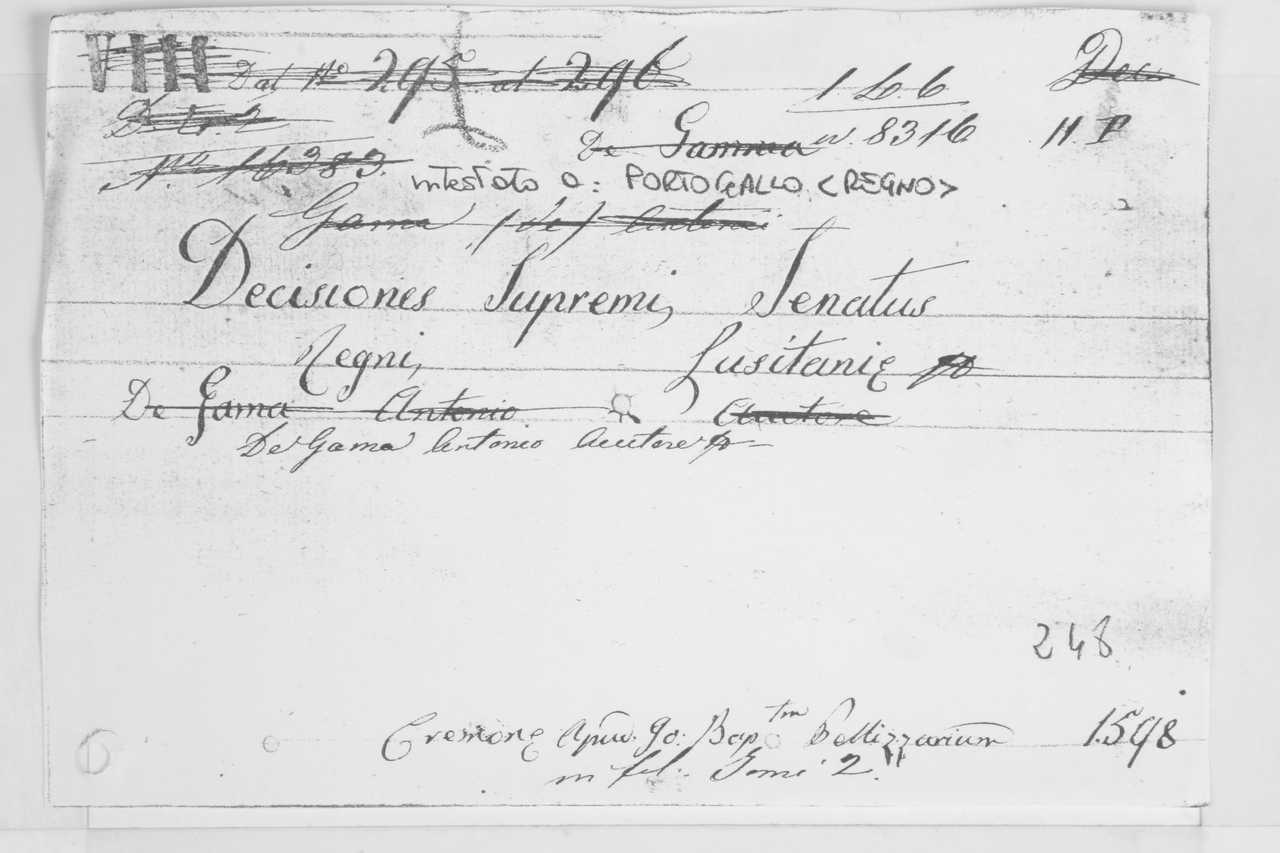 VIII Dal No 295 al 296 1 L. 6 Dec
De Gamma n. 8316 H P
No 16383. intestato a: PORTOGALLO <REGNO>
Gama (de) Antonio
Decisiones Supremi, Senatus
Regni, Lusitanie
De Gama Antonio Auctore
De Gama Antonio Auctore
248
Cremone Apud. Jo: Baptm Pellizzarium 1598
in fol: Tomi 2.